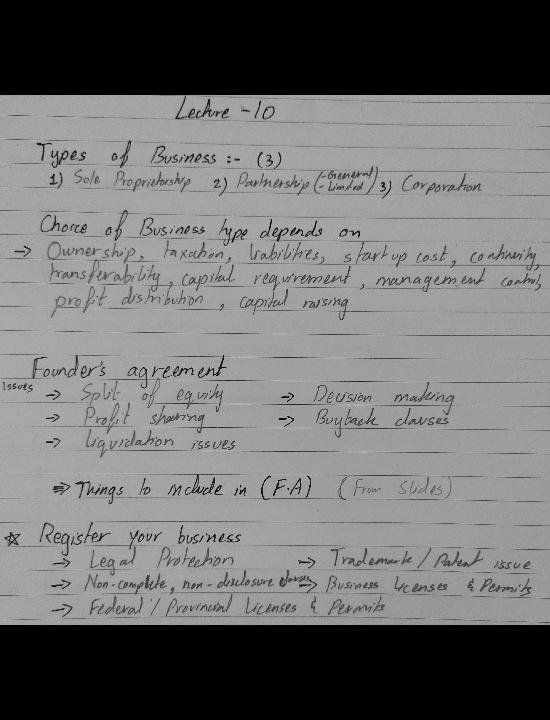 Lecture - 10
Types of Business :- (3)
1) Sole Proprietorship 2) Partnership (-General -Limited) 3) Corporation
Choice of Business type depends on
→ Ownership, taxation, liabilities, start up cost, continuity,
transferability, capital requirement, management control,
profit distribution, capital raising
Founder's agreement
Issues → Split of equity → Decision making
→ Profit sharing → Buyback clauses
→ Liquidation issues
⇒ Things to include in (F.A) (From Slides)
☆ Register your business
→ Legal Protection → Trademark / Patent issue
→ Non-complete, non-disclosure clauses → Business Licenses & Permits
→ Federal / Provincial Licenses & Permits